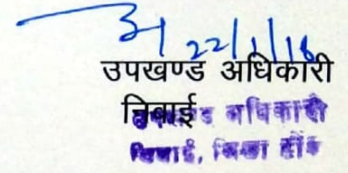 22/1/16
उपखण्ड अधिकारी
निवाई
उपखण्ड अधिकारी
निवाई, जिला टोंक